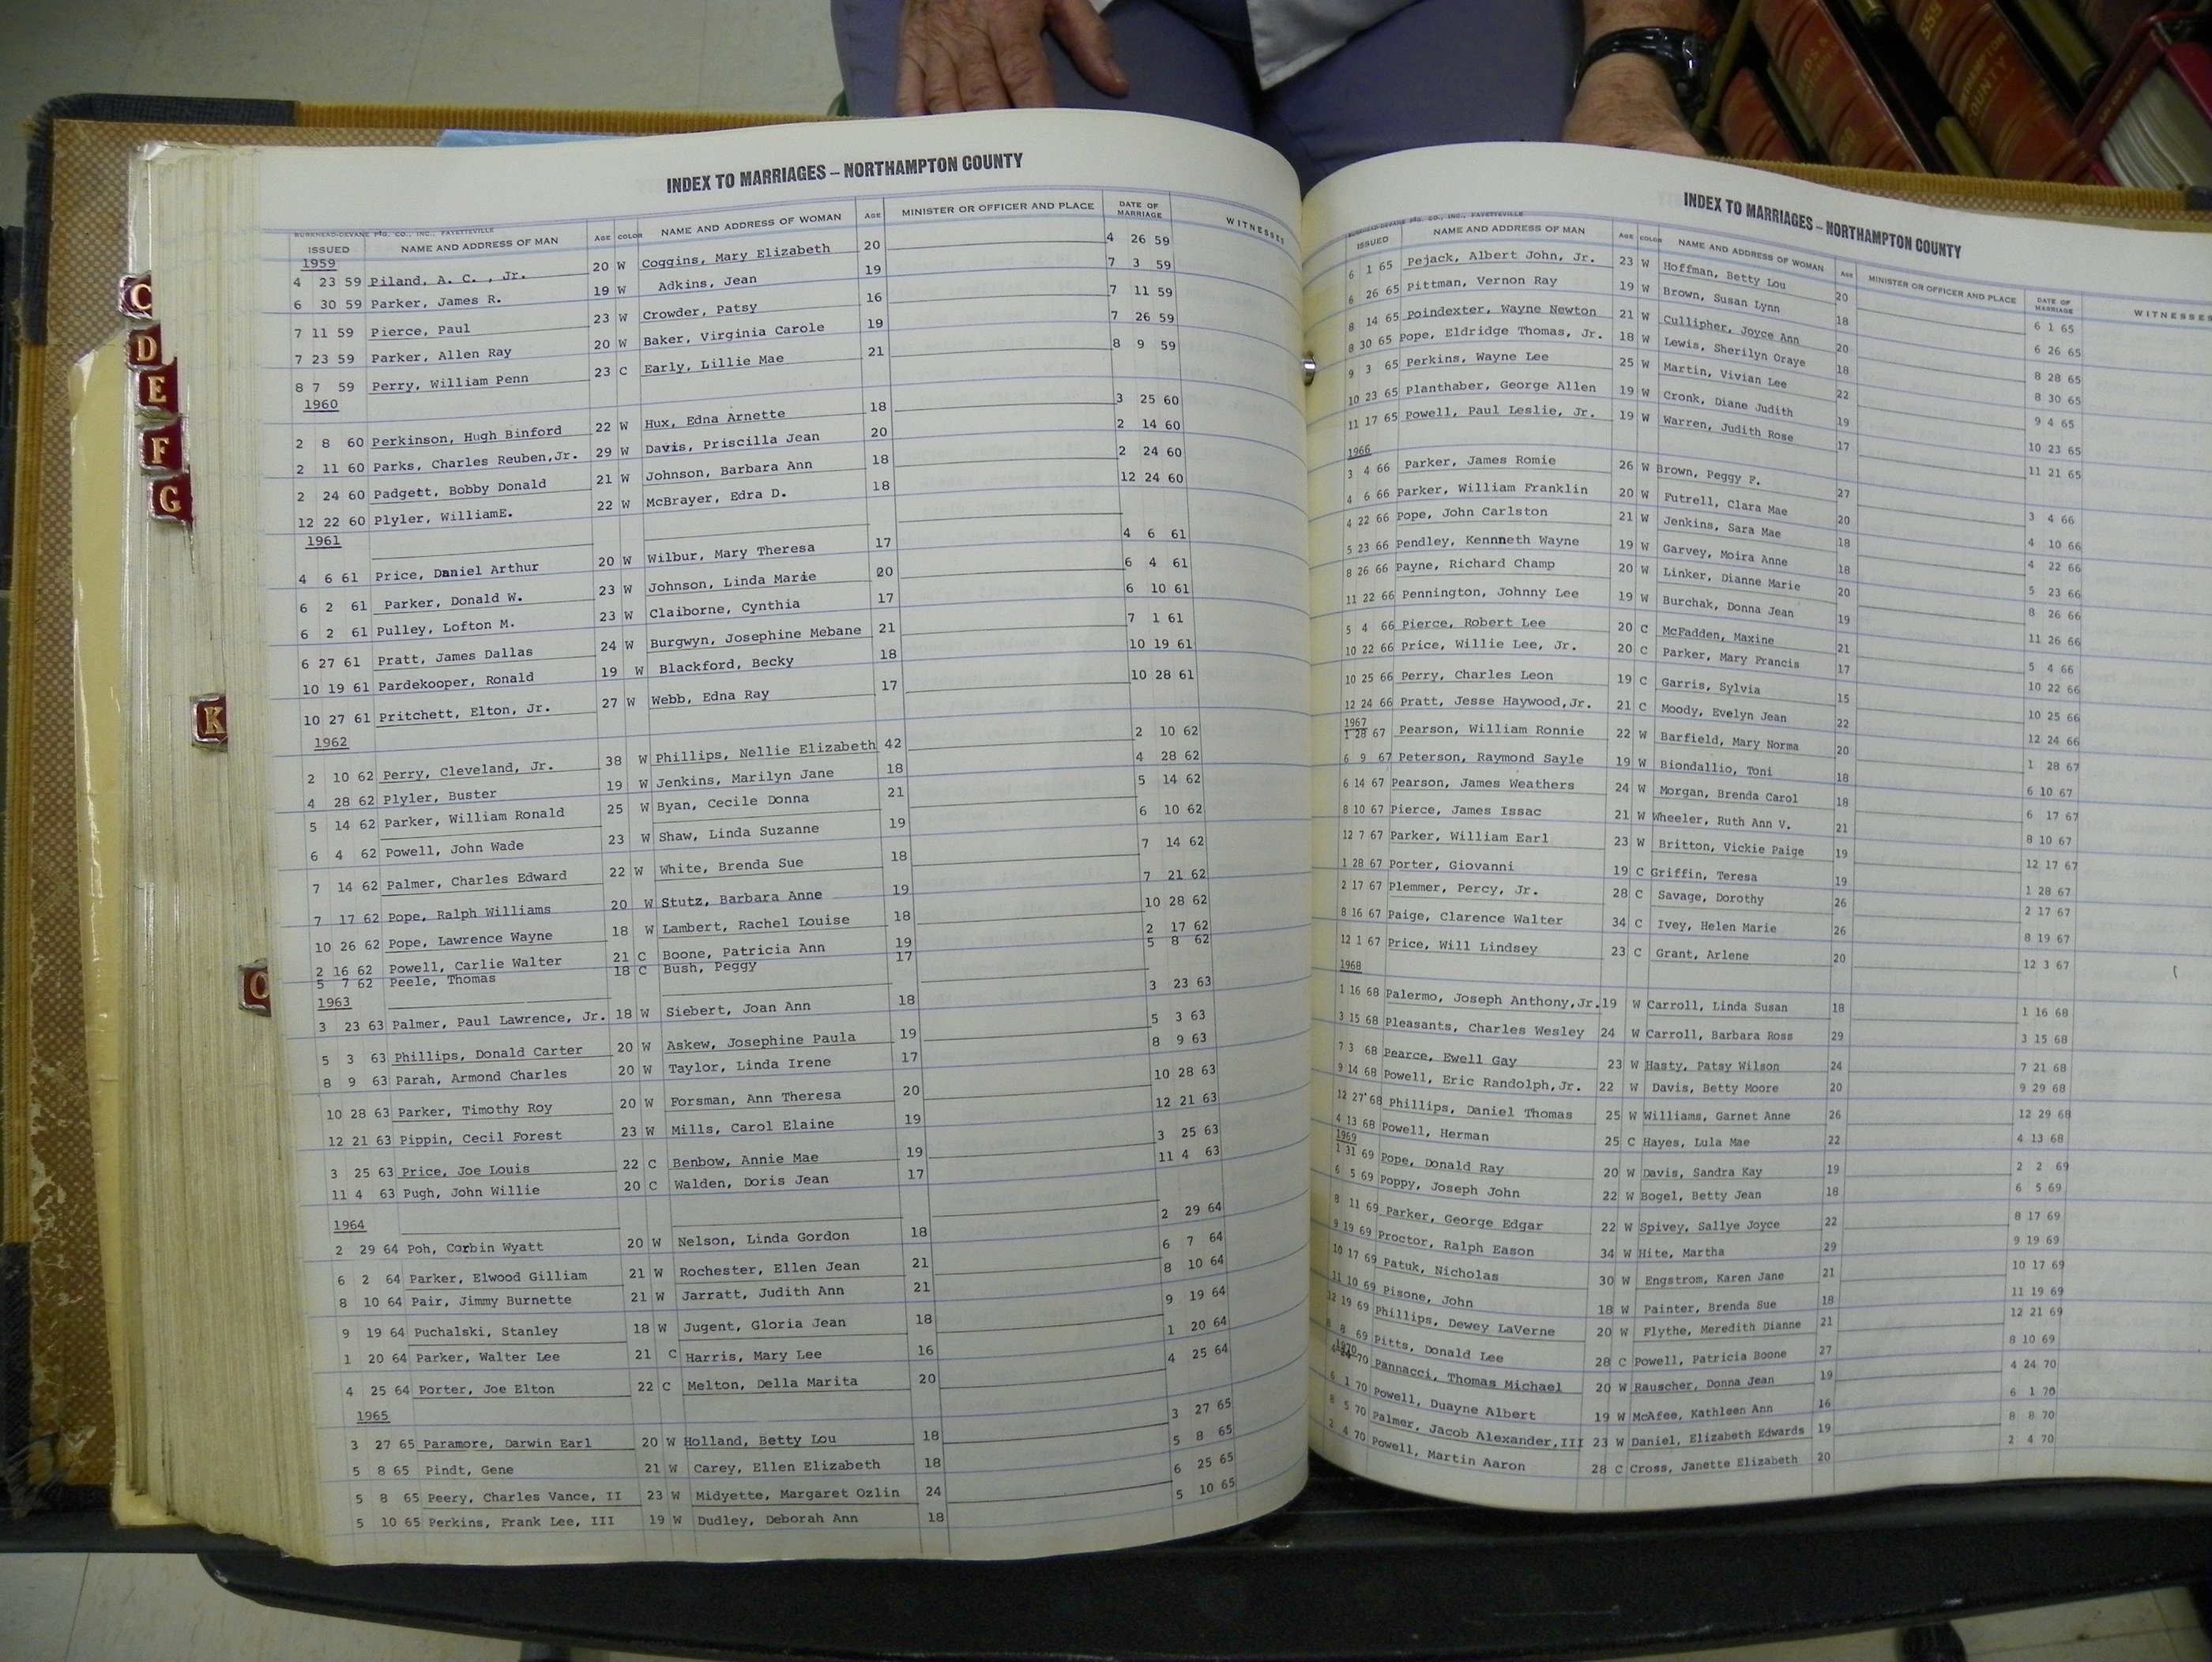 INDEX TO MARRIAGES – NORTHAMPTON COUNTY
BURKHEAD-DEVANE PTG. CO., INC., FAYETTEVILLE
ISSUED NAME AND ADDRESS OF MAN AGE COLOR NAME AND ADDRESS OF WOMAN AGE MINISTER OR OFFICER AND PLACE DATE OF MARRIAGE WITNESSES
1959
4 23 59 Piland, A. C. , Jr. 20 W Coggins, Mary Elizabeth 20 4 26 59
6 30 59 Parker, James R. 19 W Adkins, Jean 19 7 3 59
7 11 59 Pierce, Paul 23 W Crowder, Patsy 16 7 11 59
7 23 59 Parker, Allen Ray 20 W Baker, Virginia Carole 19 7 26 59
8 7 59 Perry, William Penn 23 C Early, Lillie Mae 21 8 9 59
1960
2 8 60 Perkinson, Hugh Binford 22 W Hux, Edna Arnette 18 3 25 60
2 11 60 Parks, Charles Reuben,Jr. 29 W Davis, Priscilla Jean 20 2 14 60
2 24 60 Padgett, Bobby Donald 21 W Johnson, Barbara Ann 18 2 24 60
12 22 60 Plyler, WilliamE. 22 W McBrayer, Edra D. 18 12 24 60
1961
4 6 61 Price, Daniel Arthur 20 W Wilbur, Mary Theresa 17 4 6 61
6 2 61 Parker, Donald W. 23 W Johnson, Linda Marie 20 6 4 61
6 2 61 Pulley, Lofton M. 23 W Claiborne, Cynthia 17 6 10 61
6 27 61 Pratt, James Dallas 24 W Burgwyn, Josephine Mebane 21 7 1 61
10 19 61 Pardekooper, Ronald 19 W Blackford, Becky 18 10 19 61
10 27 61 Pritchett, Elton, Jr. 27 W Webb, Edna Ray 17 10 28 61
1962
2 10 62 Perry, Cleveland, Jr. 38 W Phillips, Nellie Elizabeth 42 2 10 62
4 28 62 Plyler, Buster 19 W Jenkins, Marilyn Jane 18 4 28 62
5 14 62 Parker, William Ronald 25 W Byan, Cecile Donna 21 5 14 62
6 4 62 Powell, John Wade 23 W Shaw, Linda Suzanne 19 6 10 62
7 14 62 Palmer, Charles Edward 22 W White, Brenda Sue 18 7 14 62
7 17 62 Pope, Ralph Williams 20 W Stutz, Barbara Anne 19 7 21 62
10 26 62 Pope, Lawrence Wayne 18 W Lambert, Rachel Louise 18 10 28 62
2 16 62 Powell, Carlie Walter 21 C Boone, Patricia Ann 19 2 17 62
5 7 62 Peele, Thomas 18 C Bush, Peggy 17 5 8 62
1963
3 23 63 Palmer, Paul Lawrence, Jr. 18 W Siebert, Joan Ann 18 3 23 63
5 3 63 Phillips, Donald Carter 20 W Askew, Josephine Paula 19 5 3 63
8 9 63 Parah, Armond Charles 20 W Taylor, Linda Irene 17 8 9 63
10 28 63 Parker, Timothy Roy 20 W Forsman, Ann Theresa 20 10 28 63
12 21 63 Pippin, Cecil Forest 23 W Mills, Carol Elaine 19 12 21 63
3 25 63 Price, Joe Louis 22 C Benbow, Annie Mae 19 3 25 63
11 4 63 Pugh, John Willie 20 C Walden, Doris Jean 17 11 4 63
1964
2 29 64 Poh, Corbin Wyatt 20 W Nelson, Linda Gordon 18 2 29 64
6 2 64 Parker, Elwood Gilliam 21 W Rochester, Ellen Jean 21 6 7 64
8 10 64 Pair, Jimmy Burnette 21 W Jarratt, Judith Ann 21 8 10 64
9 19 64 Puchalski, Stanley 18 W Jugent, Gloria Jean 18 9 19 64
1 20 64 Parker, Walter Lee 21 C Harris, Mary Lee 16 1 20 64
4 25 64 Porter, Joe Elton 22 C Melton, Della Marita 20 4 25 64
1965
3 27 65 Paramore, Darwin Earl 20 W Holland, Betty Lou 18 3 27 65
5 8 65 Pindt, Gene 21 W Carey, Ellen Elizabeth 18 5 8 65
5 8 65 Peery, Charles Vance, II 23 W Midyette, Margaret Ozlin 24 6 25 65
5 10 65 Perkins, Frank Lee, III 19 W Dudley, Deborah Ann 18 5 10 65
INDEX TO MARRIAGES – NORTHAMPTON COUNTY
BURKHEAD-DEVANE PTG. CO., INC., FAYETTEVILLE
ISSUED NAME AND ADDRESS OF MAN AGE COLOR NAME AND ADDRESS OF WOMAN AGE MINISTER OR OFFICER AND PLACE DATE OF MARRIAGE WITNESSES
6 1 65 Pejack, Albert John, Jr. 23 W Hoffman, Betty Lou 20 6 1 65
6 26 65 Pittman, Vernon Ray 19 W Brown, Susan Lynn 18 6 26 65
8 14 65 Poindexter, Wayne Newton 21 W Cullipher, Joyce Ann 20 8 28 65
8 30 65 Pope, Eldridge Thomas, Jr. 18 W Lewis, Sherilyn Oraye 18 8 30 65
9 3 65 Perkins, Wayne Lee 25 W Martin, Vivian Lee 22 9 4 65
10 23 65 Planthaber, George Allen 19 W Cronk, Diane Judith 19 10 23 65
11 17 65 Powell, Paul Leslie, Jr. 19 W Warren, Judith Rose 17 11 21 65
1966
3 4 66 Parker, James Romie 26 W Brown, Peggy F. 27 3 4 66
4 6 66 Parker, William Franklin 20 W Futrell, Clara Mae 20 4 10 66
4 22 66 Pope, John Carlston 21 W Jenkins, Sara Mae 18 4 22 66
5 23 66 Pendley, Kennneth Wayne 19 W Garvey, Moira Anne 18 5 23 66
8 26 66 Payne, Richard Champ 20 W Linker, Dianne Marie 20 8 26 66
11 22 66 Pennington, Johnny Lee 19 W Burchak, Donna Jean 19 11 26 66
5 4 66 Pierce, Robert Lee 20 C McFadden, Maxine 21 5 4 66
10 22 66 Price, Willie Lee, Jr. 20 C Parker, Mary Francis 17 10 22 66
10 25 66 Perry, Charles Leon 19 C Garris, Sylvia 15 10 25 66
12 24 66 Pratt, Jesse Haywood,Jr. 21 C Moody, Evelyn Jean 22 12 24 66
1967
1 28 67 Pearson, William Ronnie 22 W Barfield, Mary Norma 20 1 28 67
6 9 67 Peterson, Raymond Sayle 19 W Biondallio, Toni 18 6 10 67
6 14 67 Pearson, James Weathers 24 W Morgan, Brenda Carol 18 6 17 67
8 10 67 Pierce, James Issac 21 W Wheeler, Ruth Ann V. 21 8 10 67
12 7 67 Parker, William Earl 23 W Britton, Vickie Paige 19 12 17 67
1 28 67 Porter, Giovanni 19 C Griffin, Teresa 19 1 28 67
2 17 67 Plemmer, Percy, Jr. 28 C Savage, Dorothy 26 2 17 67
8 16 67 Paige, Clarence Walter 34 C Ivey, Helen Marie 26 8 19 67
12 1 67 Price, Will Lindsey 23 C Grant, Arlene 20 12 3 67
1968
1 16 68 Palermo, Joseph Anthony,Jr.19 W Carroll, Linda Susan 18 1 16 68
3 15 68 Pleasants, Charles Wesley 24 W Carroll, Barbara Ross 29 3 15 68
7 3 68 Pearce, Ewell Gay 23 W Hasty, Patsy Wilson 24 7 21 68
9 14 68 Powell, Eric Randolph,Jr. 22 W Davis, Betty Moore 20 9 29 68
12 27 68 Phillips, Daniel Thomas 25 W Williams, Garnet Anne 26 12 29 68
4 13 68 Powell, Herman 25 C Hayes, Lula Mae 22 4 13 68
1969
1 31 69 Pope, Donald Ray 20 W Davis, Sandra Kay 19 2 2 69
6 5 69 Poppy, Joseph John 22 W Bogel, Betty Jean 18 6 5 69
8 11 69 Parker, George Edgar 22 W Spivey, Sallye Joyce 22 8 17 69
9 19 69 Proctor, Ralph Eason 34 W Hite, Martha 29 9 19 69
10 17 69 Patuk, Nicholas 30 W Engstrom, Karen Jane 21 10 17 69
11 10 69 Pisone, John 18 W Painter, Brenda Sue 18 11 19 69
12 19 69 Phillips, Dewey LaVerne 20 W Flythe, Meredith Dianne 21 12 21 69
8 8 69 Pitts, Donald Lee 28 C Powell, Patricia Boone 27 8 10 69
1970
70 Pannacci, Thomas Michael 20 W Rauscher, Donna Jean 19 4 24 70
6 1 70 Powell, Duayne Albert 19 W McAfee, Kathleen Ann 16 6 1 70
8 5 70 Palmer, Jacob Alexander,III 23 W Daniel, Elizabeth Edwards 19 8 8 70
2 4 70 Powell, Martin Aaron 28 C Cross, Janette Elizabeth 20 2 4 70
C
D
E
F
G
K
559
NORTHAMPTON
COUNTY